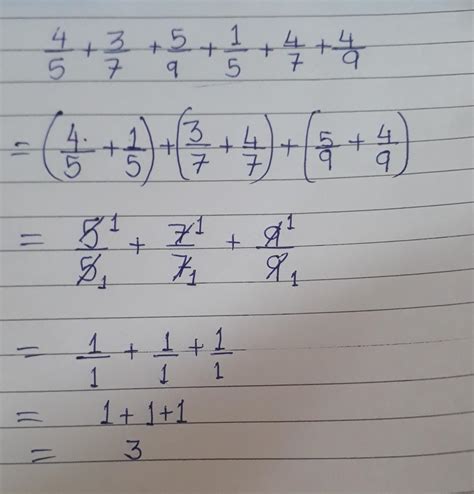 4/5 + 3/7 + 5/9 + 1/5 + 4/7 + 4/9
= (4/5 + 1/5) + (3/7 + 4/7) + (5/9 + 4/9)
= 5 1/5 1 + 7 1/7 1 + 9 1/9 1
= 1/1 + 1/1 + 1/1
= 1 + 1 + 1
= 3